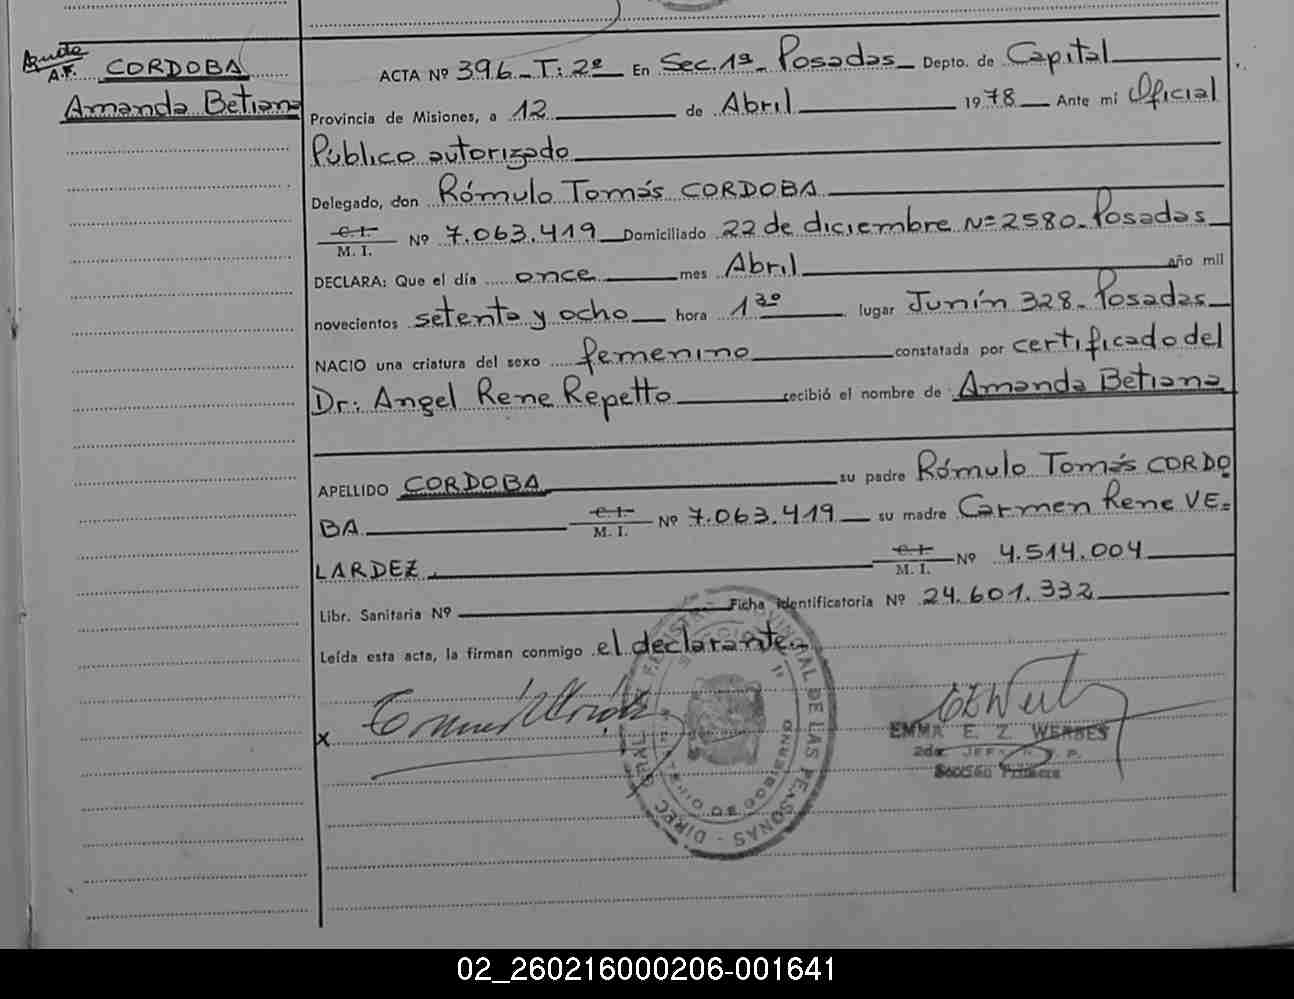 CORDOBA
Amanda Betiana
ACTA Nº 396 - T: 2º En Sec. 1ª - Posadas - Depto. de Capital
Provincia de Misiones, a 12 de Abril 1978 Ante mi Oficial
Público autorizado
Delegado, don Rómulo Tomás CORDOBA
C.I. M. I. Nº 7.063.419 Domiciliado 22 de diciembre Nº 2580 - Posadas
DECLARA: Que el día once mes Abril año mil
novecientos setenta y ocho hora 1 30 lugar Junín 328 - Posadas
NACIO una criatura del sexo femenino constatada por certificado del
Dr: Angel Rene Repetto recibió el nombre de Amanda Betiana
APELLIDO CORDOBA su padre Rómulo Tomás CORDO
BA C.I. M. I. Nº 7.063.419 su madre Carmen Rene VE=
LARDEZ. C.I. M. I. Nº 4.514.004
Libr. Sanitaria Nº Ficha identificatoria Nº 24.601.332
Leída esta acta, la firman conmigo el declarante.-
x
EMMA E. Z. WERBES
2da JEFE
Sección Primera
PROVINCIAL DE LAS PERSONAS - DIREC
02_260216000206-001641